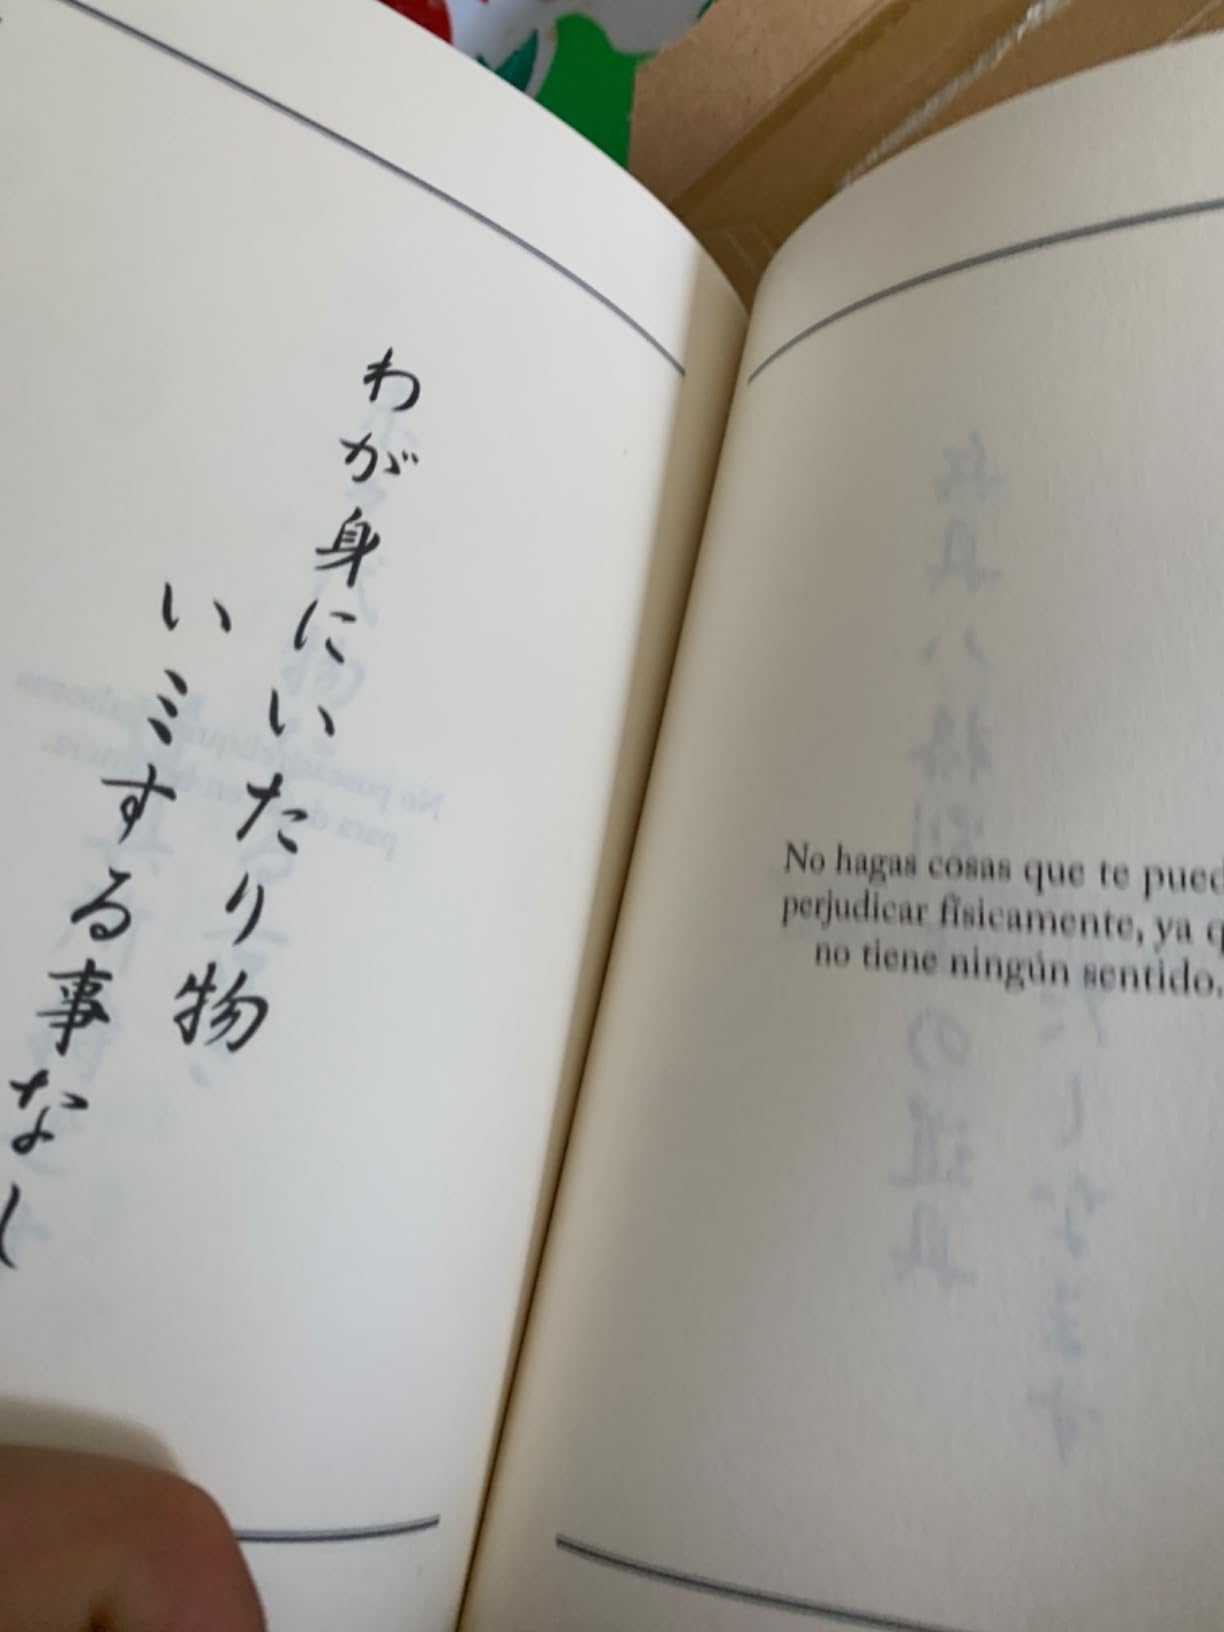 わが身にいたり物
いミする事なし
No hagas cosas que te
perjudicar físicamente, ya
no tiene ningún sentido.